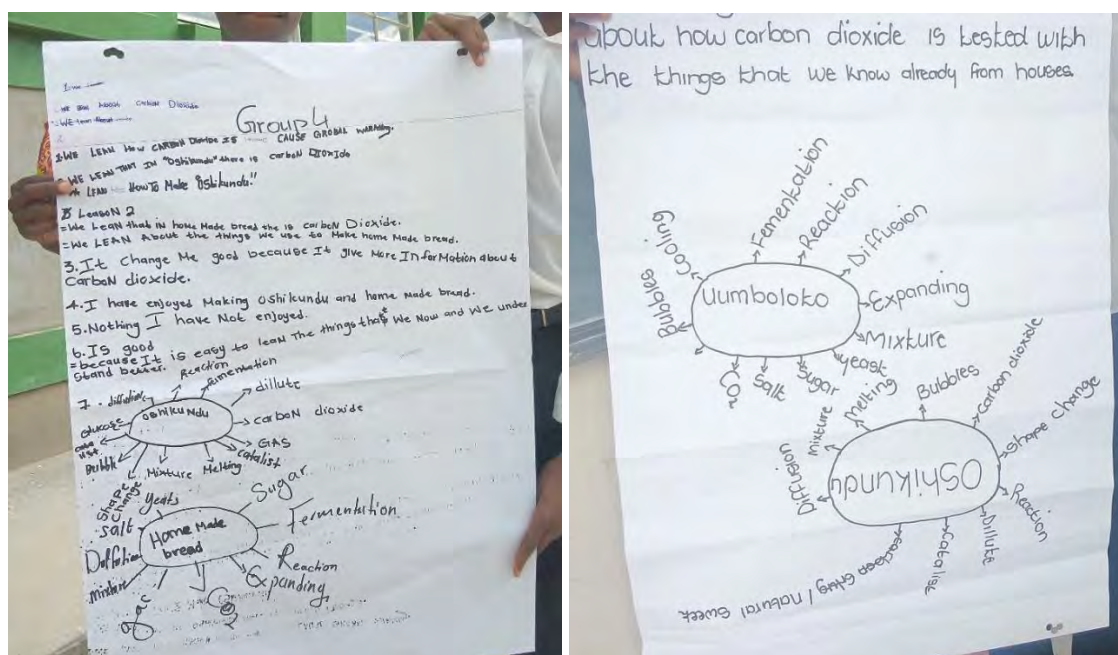 Group 4
1. WE LEAN HOW CARBON DIOXIDE IS CAUSE GROBAL WARMING.
WE LEAN THAT IN "Oshikundu" there is carboN DIOXIDe
LEAN HOW TO Make "Oshikundu."
LeasoN 2
=We LeaN that iN home Made bread the is carboN Dioxide.
=We LEAN About the things We use to Make home Made bread.
3. It change Me good because It give More InforMation about
CarboN dioxide.
4. I have enjoyed Making Oshikundu and home Made bread.
5. Nothing I have Not enjoyed.
6. Is good
=because It is easy to leaN The things that We Now and We under
stand better.
7.
Oshikundu
Reaction
dillute
carboN dioxide
GAS
catalist
Melting
Mixture
Shape
change
Bubble
Glucose
Home Made
bread
Sugar
Fermentation
Reaction
Expanding
mixture
Salt
Yeats
about how carbon dioxide is tested with
the things that we know already from houses.
Uumboloko
Bubbles
Cooling
Fementation
Reaction
Diffusion
Expanding
Mixture
yeast
Sugar
Salt
CO2
Oshikundu
Diffusion
mixture
Melting
Bubbles
Carbon dioxide
Shape change
Reaction
Dilute
Catalist
/ natural Sweet